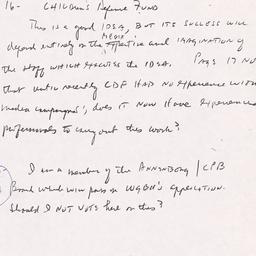 16- CHILDREN'S Defense FUND
This is a good IDEA, BUT ITS SUCCESS will
MEDIA
depend entirely on the expertise and IMAGINATION of
the staff WHICH EXECUTES the IDEA. PAGE 17 NOTES
that until recently CDF HAD NO experience with
media campaigns, does it NOW HAVE experienced
professionals to carry out this work?
I am a member of the ANNENBERG / CPB
Board which will pass on WGBH's application.
Should I NOT VOTE here on this?